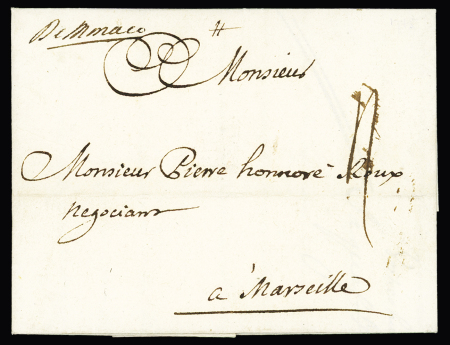 De Monaco #
Monsieur
Monsieur Pierre honnoré Roux
negociant
a Marseille